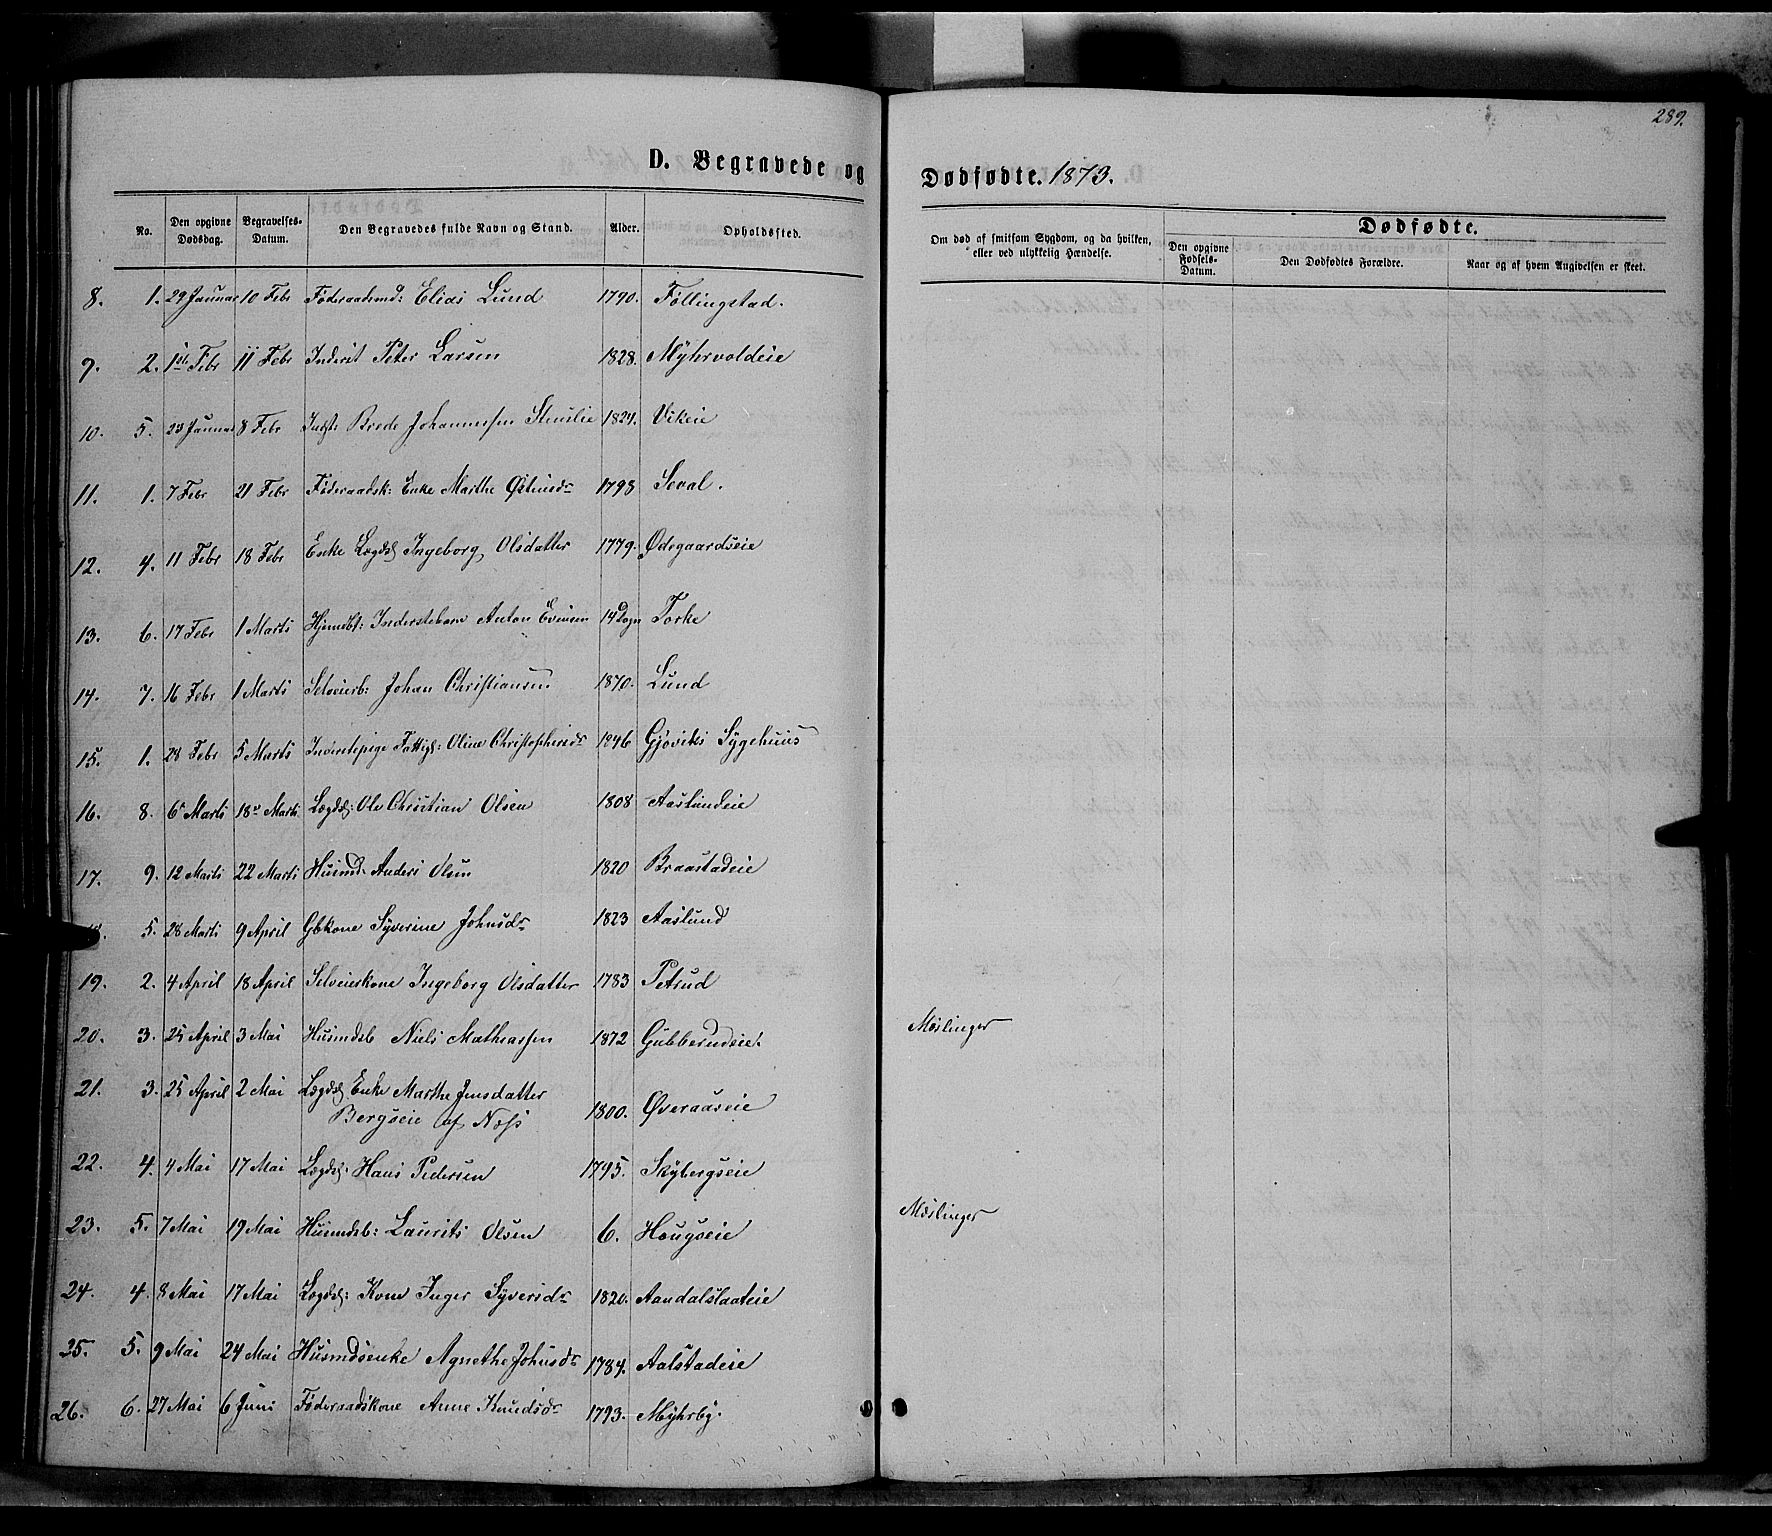 289.
D. Begravede og Dødfødte. 1873.
No. Den opgivne Dødsdag. Begravelses-Datum. Den Begravedes fulde Navn og Stand. Alder. Opholdssted. Om død af smitsom Sygdom, og da hvilken, eller ved ulykkelig Hændelse. Dødfødte.
Den opgivne Fødsels-Datum. Den Dødfødtes Forældre. Naar og af hvem Angivelsen er skeet.
8. 1. 29 Januar 10 Febr Føderaadsmd: Elias Lund 1790. Föllingstad.
9. 2. 1ste Febr 11 Febr Inderst Peter Larsen 1828. Myhrvoldeie
10. 5. 23 Januar 8 Febr Indst: Brede Johannessen Stenslie 1824. Vikeie
11. 1. 7 Febr 21 Febr Føderaadsk: Enke Marthe Østensdr 1798 Seval.
12. 4. 11 Febr 18 Febr Enke Lægdsl Ingeborg Olsdatter 1779. Ødegaardseie
13. 6. 17 Febr 1 Marts Hjemdbt: Inderstebarn Anton Evensen 14 Døgn Torke
14. 7. 16 Febr 1 Marts Selveierb: Johan Christiansen 1870. Lund
15. 1. 28 Febr 5 Marts Inderstepige Fattigl: Oline Christophersdr 1846 Gjøviks Sygehuus
16. 8. 6 Marts 18 Marts Lægdsl: Ole Christian Olsen 1808 Aaslundeie
17. 9. 12 Marts 22 Marts Husmd: Anders Olsen 1820 Braastadeie
5. 28 Marts 9 April Gbkone Syverine Johnsdr 1823 Aaslund
19. 2. 4 April 18 April Selveierkone Ingeborg Olsdatter 1783 Petrud
20. 3. 25 April 3 Mai Husmdsb Niels Mathiassen 1872 Gubberudseie. Mæslinger
21. 3. 25 April 2 Mai Lægdsl Enke Marthe Jensdatter
Bergseie af Næss 1800. Øveraaseie
22. 4. 4 Mai 17 Mai Lægdsl: Hans Pedersen 1795. Skybergseie
23. 5. 7 Mai 19 Mai Husmdsb: Laurits Olsen 6. Hougseie Mæslinger
24. 4. 8 Mai 17 Mai Lægdsl: Kone Inger Syversdr 1820. Aandalslaateie
25. 5. 9 Mai 24 Mai Husmdsenke Agnethe Johnsdr 1784. Aalstadeie
26. 6. 27 Mai 6 Juni Føderaadskone Anne Knudsdr 1793. Myhrby.